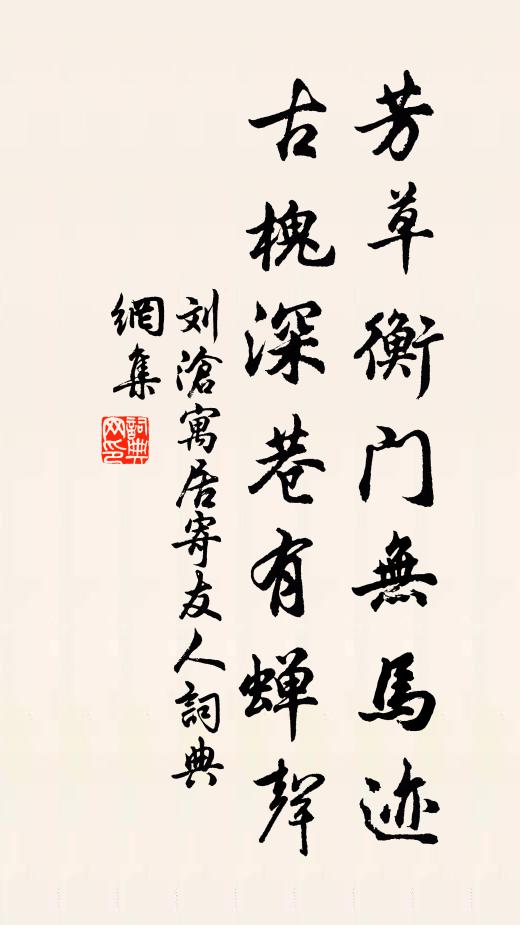 芳草衡门無馬迹
古槐深巷有蝉聲
刘滄寓居寄友人詞典
網集
詞典
网印